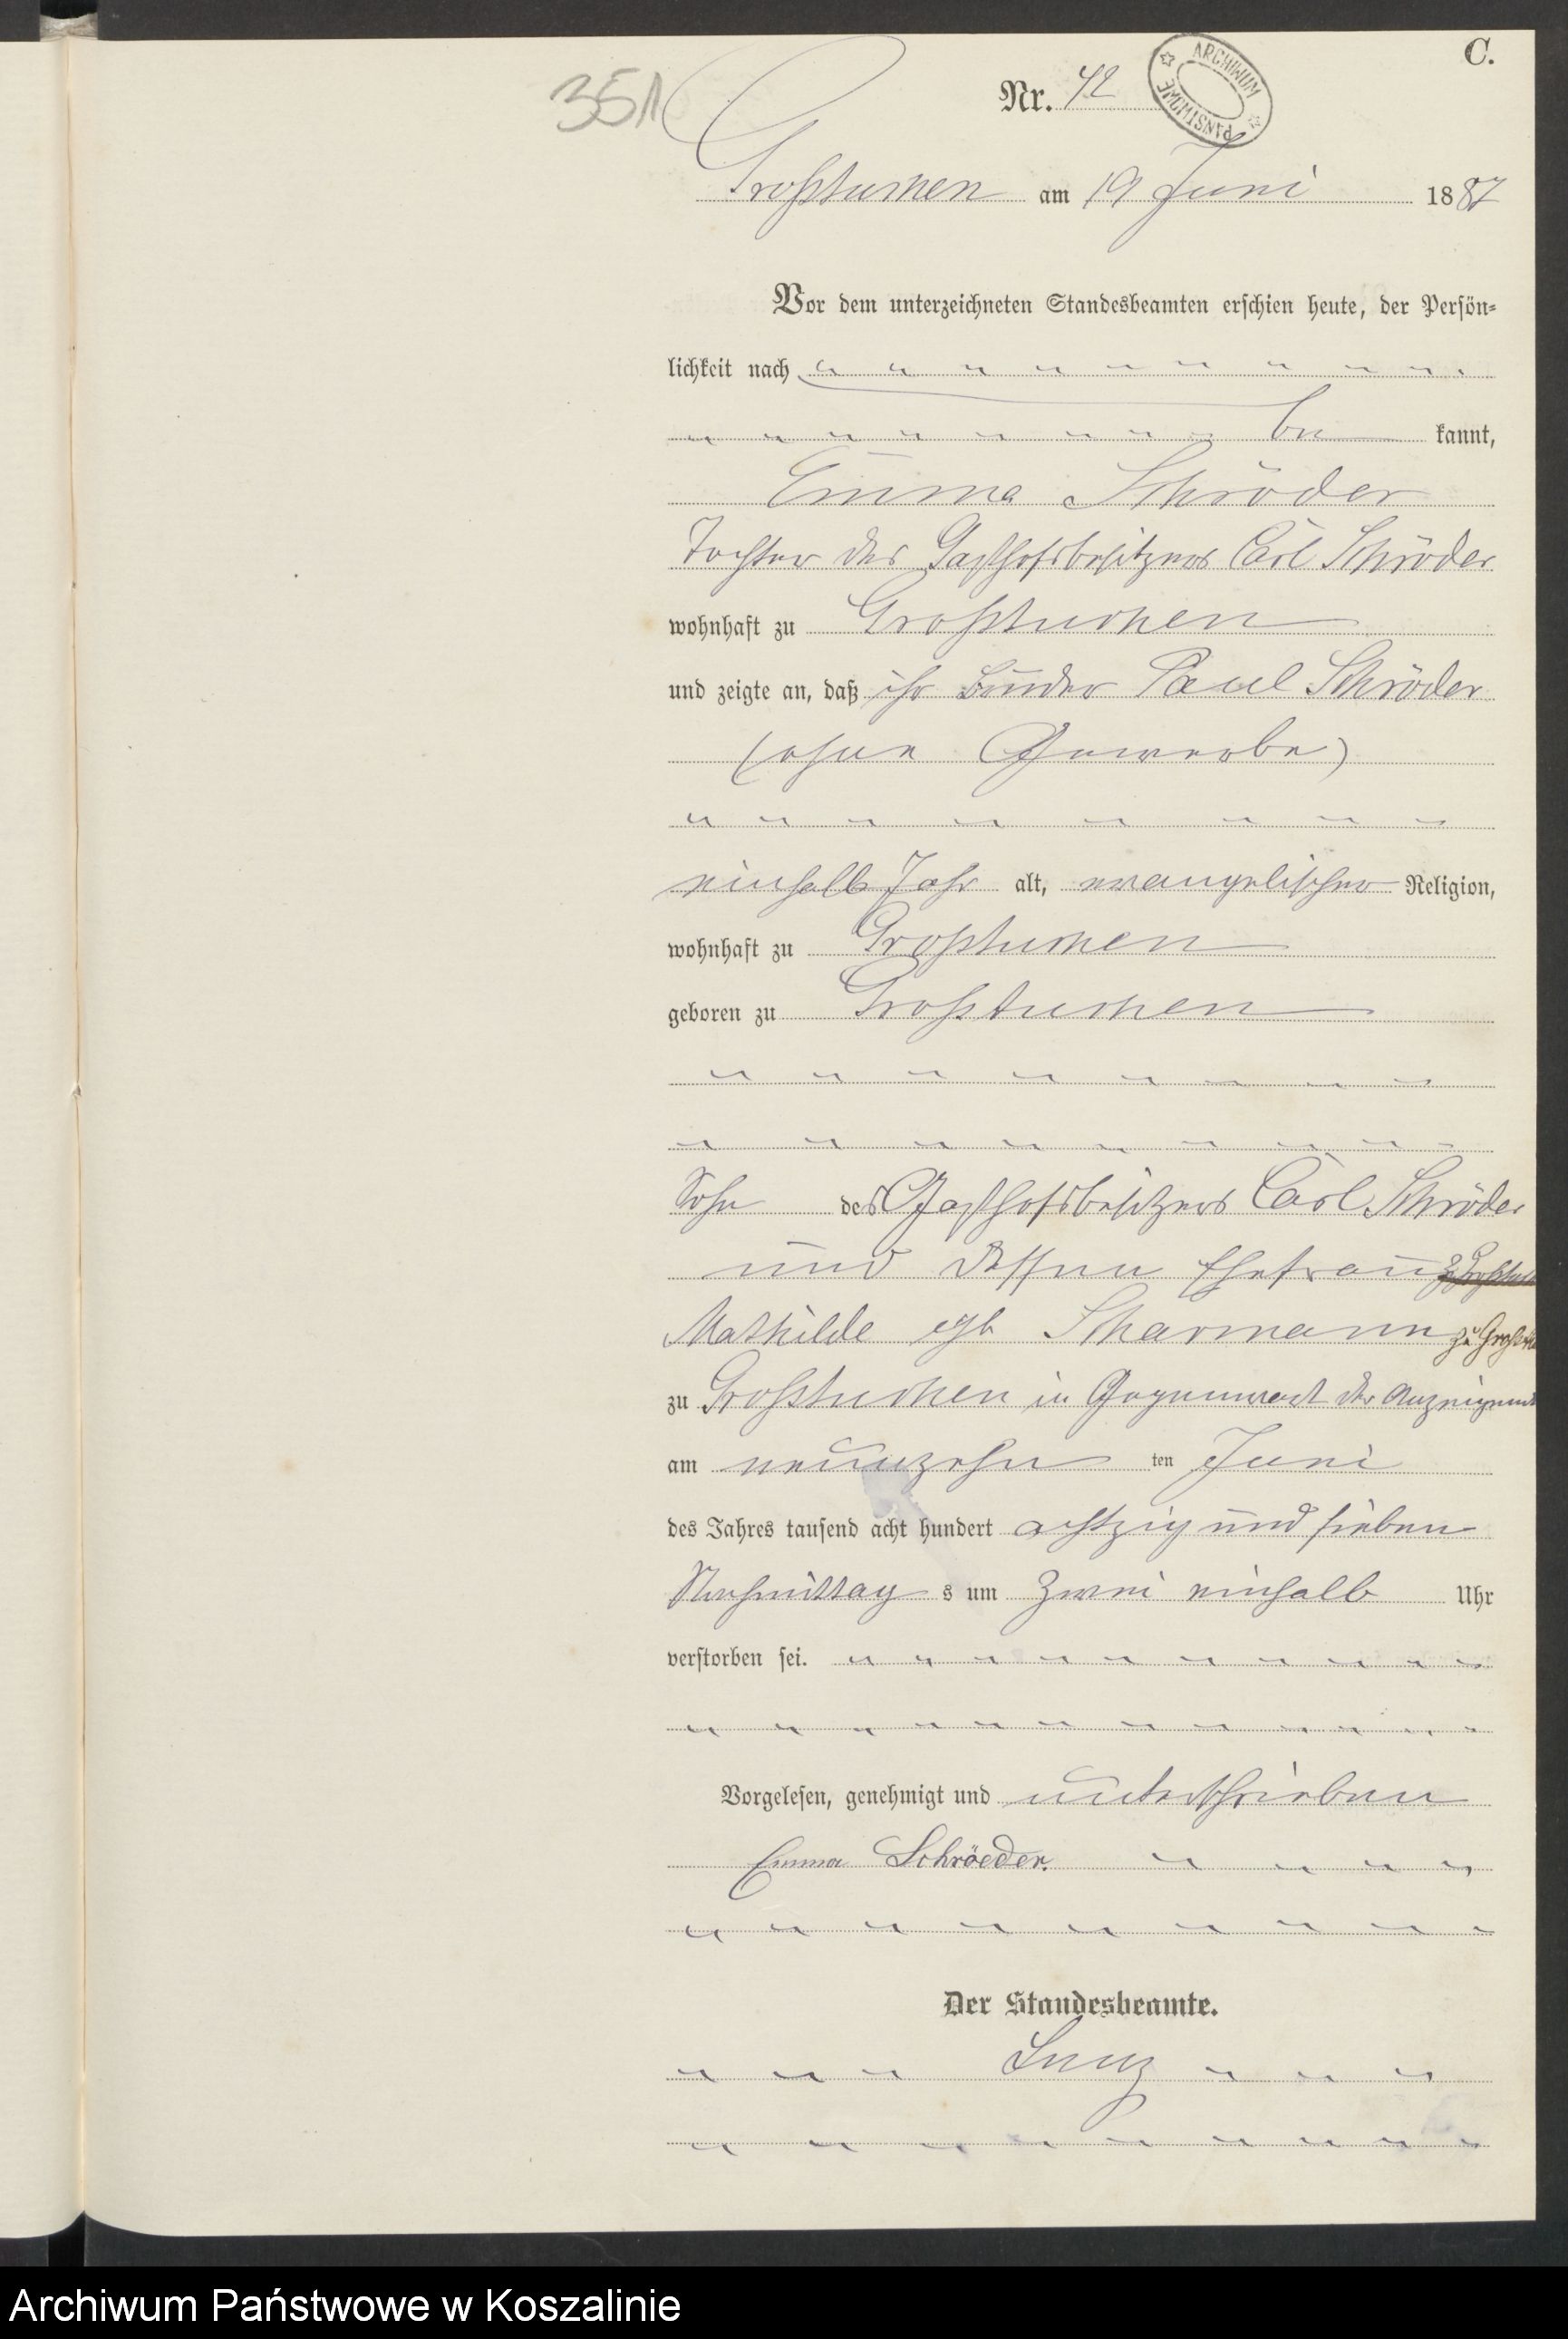 C.
351
Nr. 42
ARCHIWUM PAŃSTWOWE
Großtuchen am 19 Juni 1887
Vor dem unterzeichneten Standesbeamten erschien heute, der Persön-
lichkeit nach
be kannt,
Emma Schröder
Tochter des Gasthofsbesitzers Carl Schröder
wohnhaft zu Großtuchen
und zeigte an, daß ihr Bruder Paul Schröder
(ohne Gewerbe)
einhalb Jahr alt, evangelischer Religion,
wohnhaft zu Großtuchen
geboren zu Großtuchen
Sohn des Gasthofsbesitzers Carl Schröder
und dessen Ehefrau
Mathilde geb Scharmann zu
zu Großtuchen in Gegenwart der
am neunzehn ten Juni
des Jahres tausend acht hundert achtzig und sieben
Nachmittag s um zwei einhalb Uhr
verstorben sei.
Vorgelesen, genehmigt und unterschrieben
Emma Schröeder.
Der Standesbeamte.
Archiwum Państwowe w Koszalinie